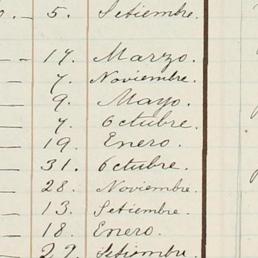 5. Setiembre.
17. Marzo.
7. Noviembre.
9. Mayo.
7. Octubre.
19. Enero.
31. Octubre.
28. Noviembre.
13. Setiembre.
18. Enero.
29. Setiembre.